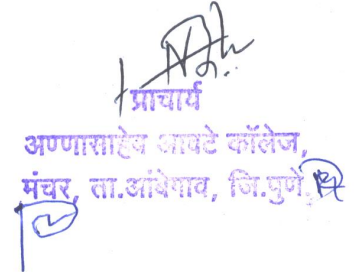 प्राचार्य
अण्णासाहेब आवटे कॉलेज,
मंचर, ता.आंबेगाव, जि.पुणे.